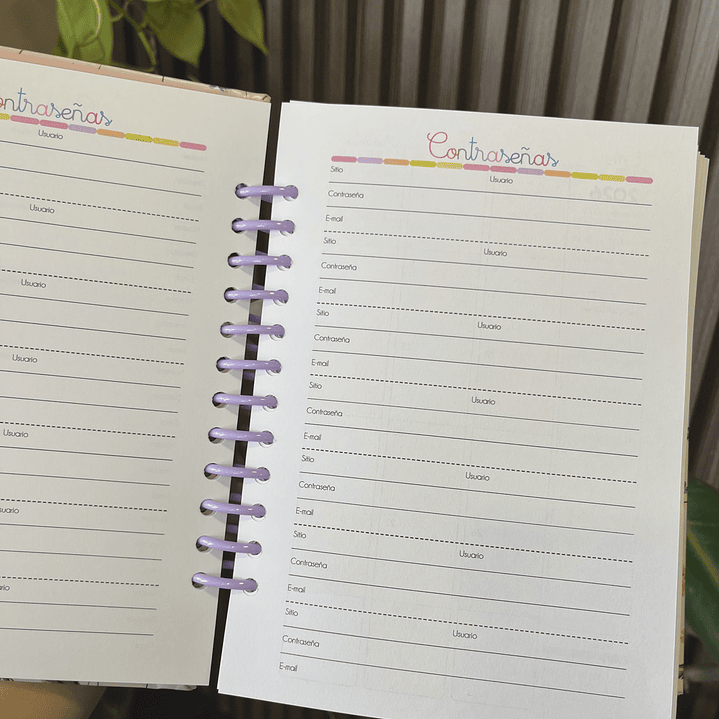 ontraseñas
Usuario
Usuario
Usuario
Usuario
Usuario
suario
rio
Contraseñas
Sitio Usuario
Contraseña
E-mail
Sitio Usuario
Contraseña
E-mail
Sitio Usuario
Contraseña
E-mail
Sitio Usuario
Contraseña
E-mail
Sitio Usuario
Contraseña
E-mail
Sitio Usuario
Contraseña
E-mail
Sitio Usuario
Contraseña
E-mail